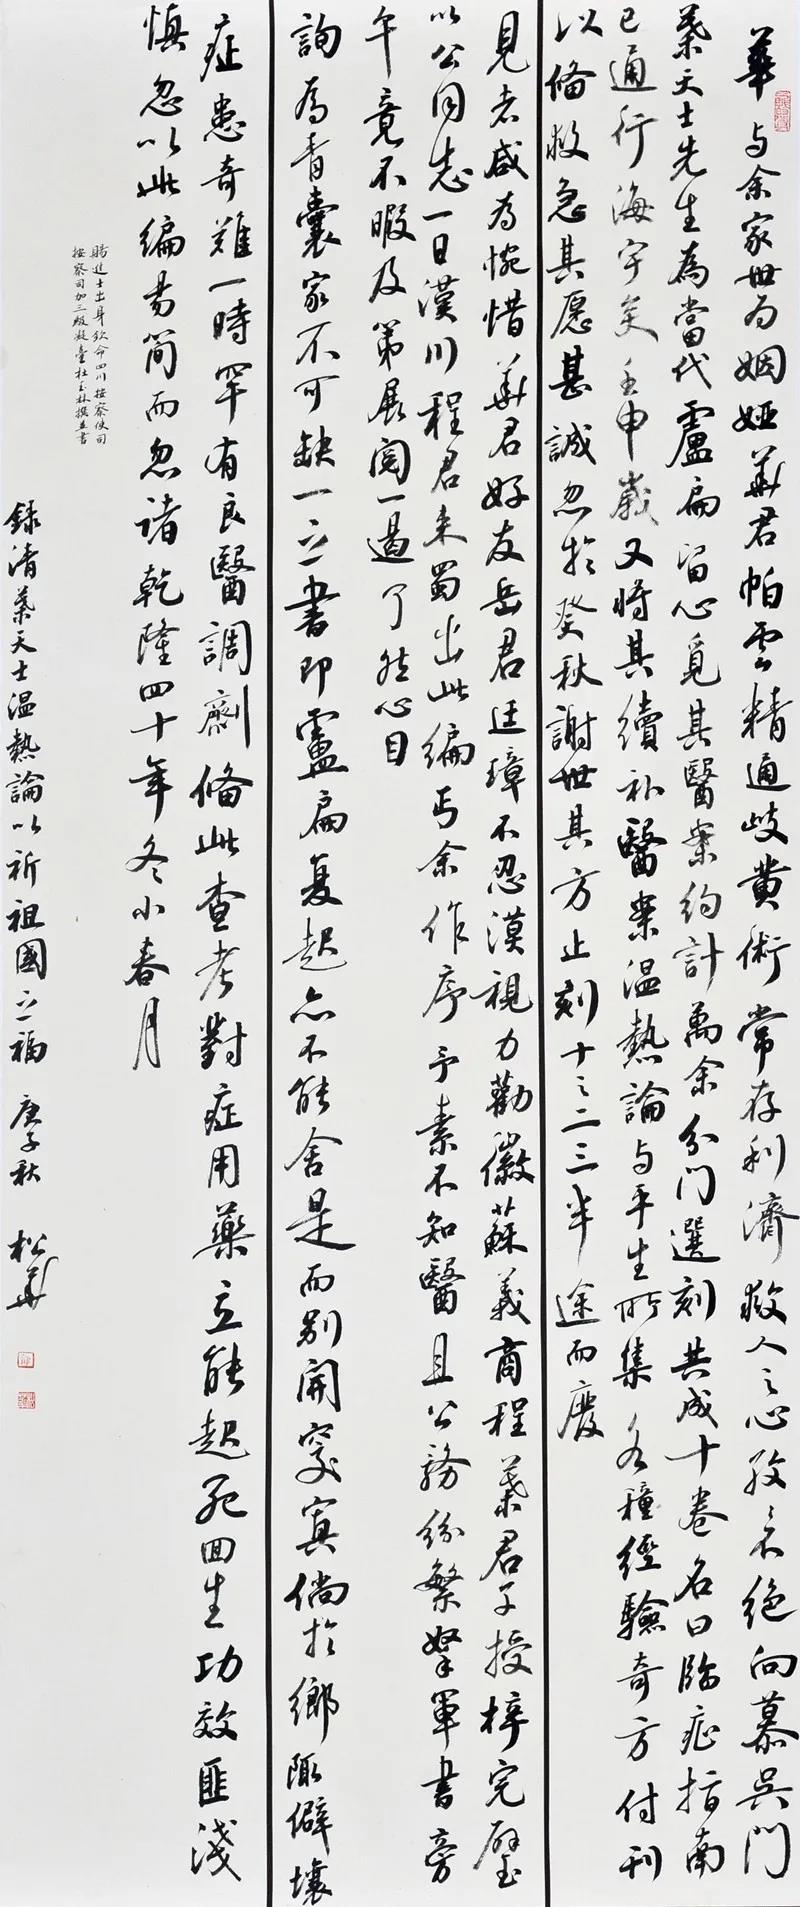 華 与余家世为姻娅華君帕雲精通岐黄術常存利濟救人之心孜々不绝向慕吴門
葉天士先生為當代盧扁留心覓其醫案約計萬余分門選刻共成十卷名曰臨症指南
已通行海宇矣壬申歲又将其續补醫案温熱論与平生所集各種經驗奇方付刊
以俻救急其愿甚誠忽於癸秋謝世其方止刻十之二三半途而廢
見者咸为惋惜華君好友岳君廷璋不忍漠視力勸徽蘇義商程葉君子授梓完璧
以公同志一日漢川程君来蜀出此编丐余作序予素不知醫且公務紛繁拏軍書旁
午竟不暇及第展阅一過了然心目
詢为青囊家不可缺一之書即盧扁复起亦不能舍是而别開窔寞倘於鄉陬僻壤
症患奇難一時罕有良醫調劑俻此查考對症用藥立能起死回生功效匪淺
慎忽以此编易简而忽诸乾隆四十年冬小春月
賜進士出身欽命四川按察使司
按察司加三級凝臺杜玉林撰並書
録清葉天士温熱論以祈祖國之福 庚子秋 松華